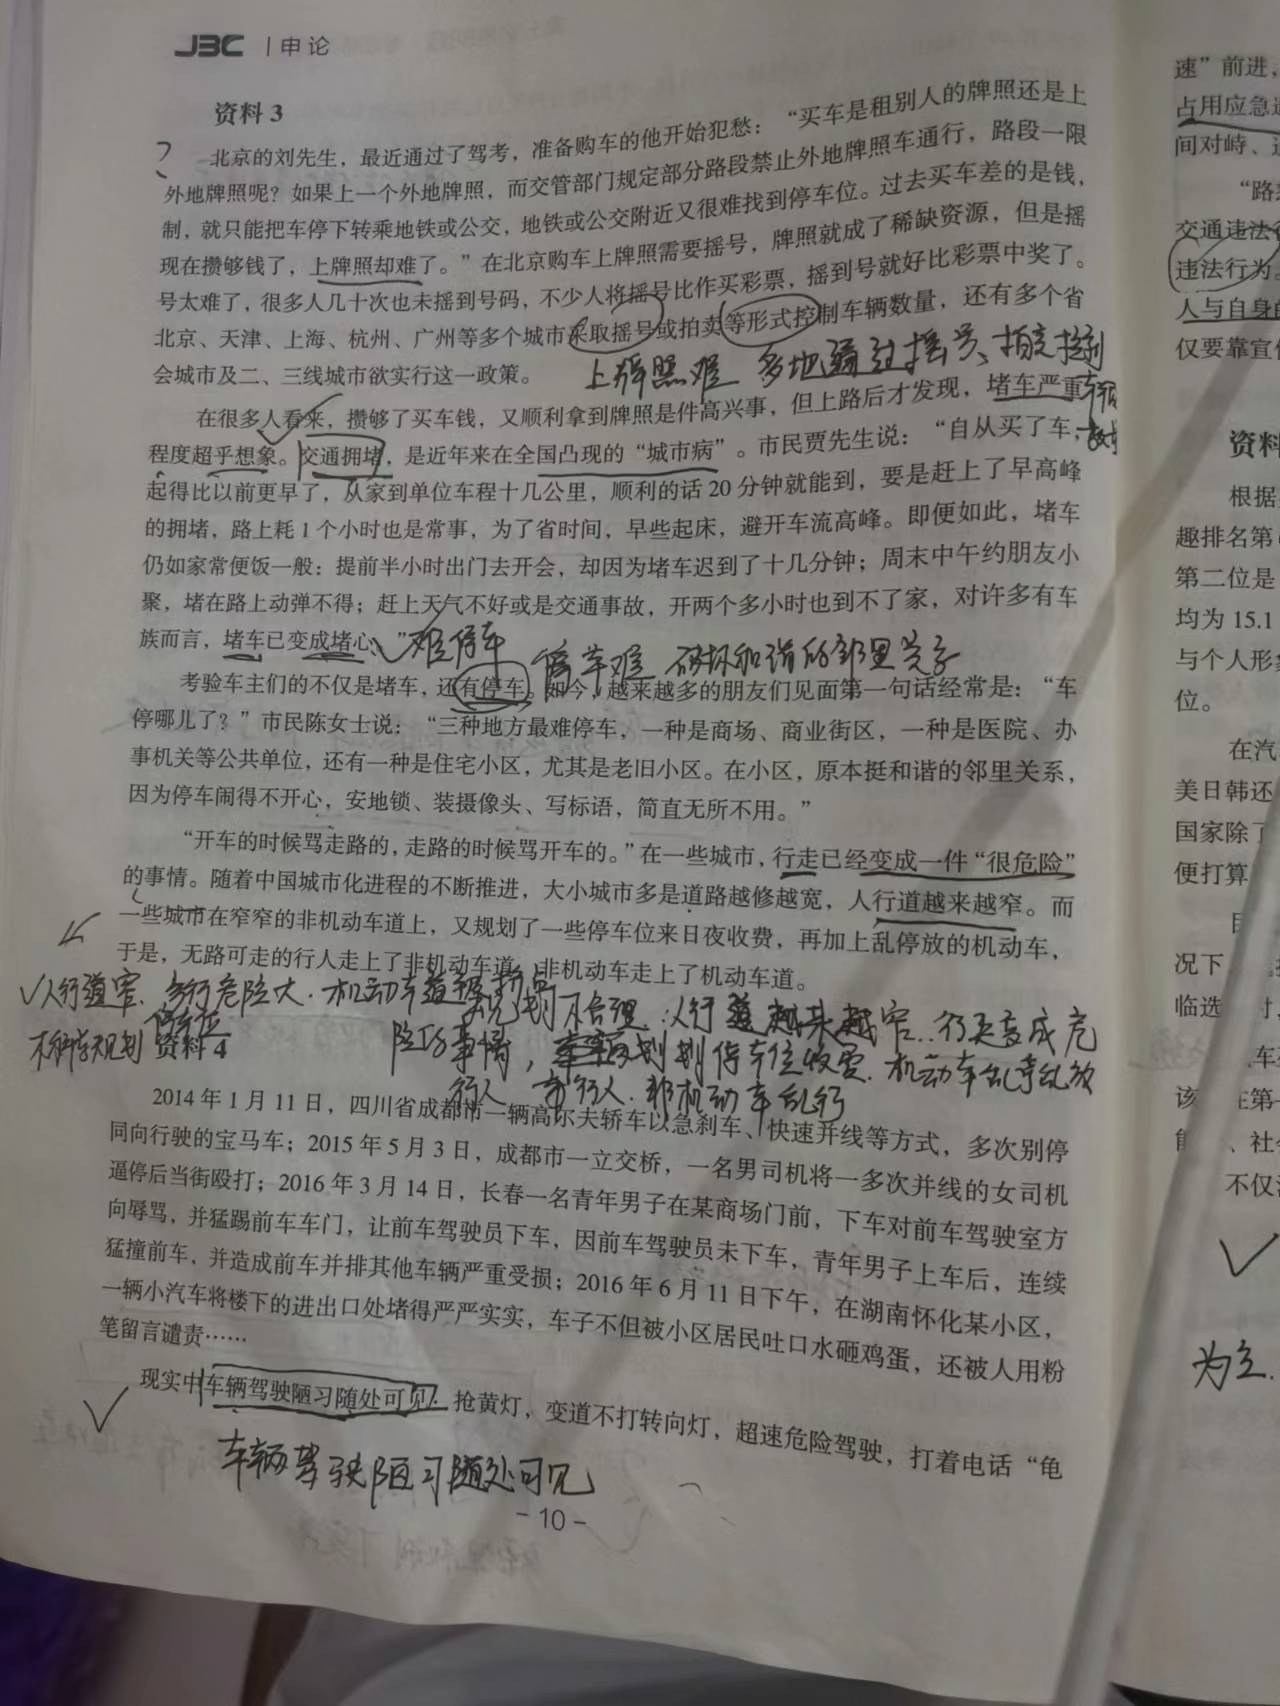 JBC | 申论
资料3
北京的刘先生，最近通过了驾考，准备购车的他开始犯愁：“买车是租别人的牌照还是上
外地牌照呢？如果上一个外地牌照，而交管部门规定部分路段禁止外地牌照车通行，路段一限
制，就只能把车停下转乘地铁或公交，地铁或公交附近又很难找到停车位。过去买车差的是钱，
现在攒够钱了，上牌照却难了。”在北京购车上牌照需要摇号，牌照就成了稀缺资源，但是摇
号太难了，很多人几十次也未摇到号码，不少人将摇号比作买彩票，摇到号就好比彩票中奖了。
北京、天津、上海、杭州、广州等多个城市采取摇号或拍卖等形式控制车辆数量，还有多个省
会城市及二、三线城市欲实行这一政策。
上牌照难 多地通过摇号、拍卖控制
车辆
数量
在很多人看来，攒够了买车钱，又顺利拿到牌照是件高兴事，但上路后才发现，堵车严重
程度超乎想象。交通拥堵，是近年来在全国凸现的“城市病”。市民贾先生说：“自从买了车，
起得比以前更早了，从家到单位车程十几公里，顺利的话20分钟就能到，要是赶上了早高峰
的拥堵，路上耗1个小时也是常事，为了省时间，早些起床，避开车流高峰。即便如此，堵车
仍如家常便饭一般：提前半小时出门去开会，却因为堵车迟到了十几分钟；周末中午约朋友小
聚，堵在路上动弹不得；赶上天气不好或是交通事故，开两个多小时也到不了家，对许多有车
族而言，堵车已变成堵心。”
难停车 停车难 破坏和谐的邻里关系
考验车主们的不仅是堵车，还有停车。如今，越来越多的朋友们见面第一句话经常是：“车
停哪儿了？”市民陈女士说：“三种地方最难停车，一种是商场、商业街区，一种是医院、办
事机关等公共单位，还有一种是住宅小区，尤其是老旧小区。在小区，原本挺和谐的邻里关系，
因为停车闹得不开心，安地锁、装摄像头、写标语，简直无所不用。”
“开车的时候骂走路的，走路的时候骂开车的。”在一些城市，行走已经变成一件“很危险”
的事情。随着中国城市化进程的不断推进，大小城市多是道路越修越宽，人行道越来越窄。而
一些城市在窄窄的非机动车道上，又规划了一些停车位来日夜收费，再加上乱停放的机动车，
于是，无路可走的行人走上了非机动车道，非机动车走上了机动车道。
人行道窄、步行危险大、机动车道
规划不合理：人行道越来越窄，行走变成危
险的事情，划停车位收费、机动车乱停乱放
行人、非机动车乱行
资料4
2014年1月11日，四川省成都市一辆高尔夫轿车以急刹车、快速并线等方式，多次别停
同向行驶的宝马车；2015年5月3日，成都市一立交桥，一名男司机将一多次并线的女司机
逼停后当街殴打；2016年3月14日，长春一名青年男子在某商场门前，下车对前车驾驶室方
向辱骂，并猛踢前车车门，让前车驾驶员下车，因前车驾驶员未下车，青年男子上车后，连续
猛撞前车，并造成前车并排其他车辆严重受损；2016年6月11日下午，在湖南怀化某小区，
一辆小汽车将楼下的进出口处堵得严严实实，车子不但被小区居民吐口水砸鸡蛋，还被人用粉
笔留言谴责……
现实中车辆驾驶陋习随处可见。抢黄灯，变道不打转向灯，超速危险驾驶，打着电话“龟
车辆驾驶陋习随处可见
- 10 -
速”前进，
占用应急
间对峙、
“路
交通违法
违法行为
人与自身
仅要靠宣
资料
根据
趣排名第
第二位是
均为15.1
与个人形
位。
在汽
美日韩还
国家除了
便打算
况下
临选
车
该
在第
能
、社
不仅
为主